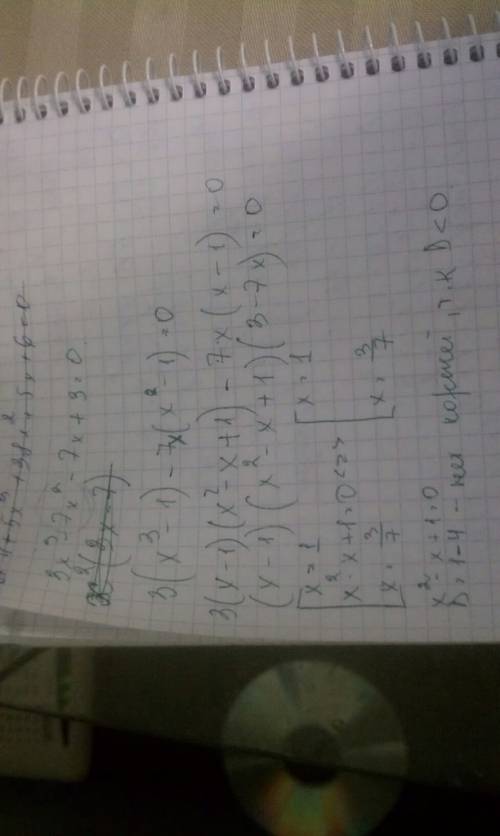 3x³-7x²-7x+3=0
3(x³-1)-7x(x²-1)=0
3(x-1)(x²-x+1)-7x(x-1)=0
(x-1)(x²-x+1)(3-7x)=0
[x=1
x²-x+1=0 <=> [x=1
x=3/7 x=3/7
x²-x+1=0
D=1-4-нет корней, т.к D<0.